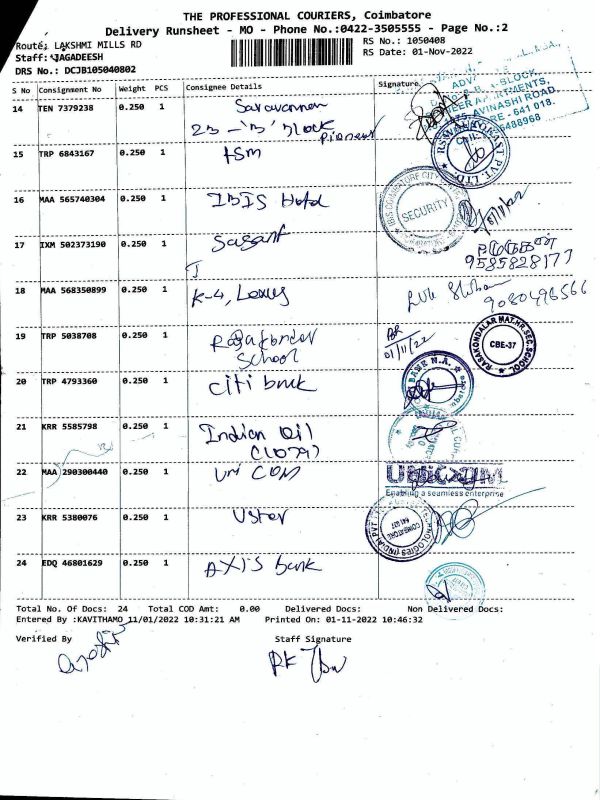 THE PROFESSIONAL COURIERS, Coimbatore
Delivery Runsheet - MO - Phone No.:0422-3505555 - Page No.:2
Route: LAKSHMI MILLS RD
RS No.: 1050408
Staff: JAGADEESH
RS Date: 01-Nov-2022
DRS No.: DCJB105040802
S No Consignment No Weight PCS Consignee Details Signature
14 TEN 7379238 0.250 1 Saravannan
2B - 'B' Block
Pioneer
AVINASHI ROAD,
15 TRP 6843167 0.250 1
16 MAA 565740304 0.250 1 IBIS Hotel
SECURITY
01/11/22
17 IXM 502373190 0.250 1
9585828177
18 MAA 568350899 0.250 1 K-4, Lexus
9080496566
19 TRP 5038708 0.250 1
School
01/11/22
RASAKONDALAR MAT.HR.SEC.SCHOOL
CBE-37
20 TRP 4793360 0.250 1 Citi bank
BANK N.A.
21 KRR 5585798 1 Indian Oil
22 MAA 290300440 0.250 1 Uni COM
UNICOM
Enabling a seamless enterprise
23 KRR 5380076 0.250 1 Uster
TECHNOLOGIES (INDIA) PVT
COIMBATORE
24 EDQ 46801629 0.250 1 AXIS bank
Total No. Of Docs: 24 Total COD Amt: 0.00 Delivered Docs: Non Delivered Docs:
Entered By :KAVITHAMO 11/01/2022 10:31:21 AM Printed On: 01-11-2022 10:46:32
Verified By Staff Signature